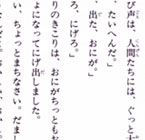 び声は、人間たちには、ぐっとす
、たいへんだ。」
、出た、おにが。」
ろ、にげろ。」
りのきこりは、おにがちっともお
ょになってにげ出しました。
い、ちょっとまちなさい。だまし